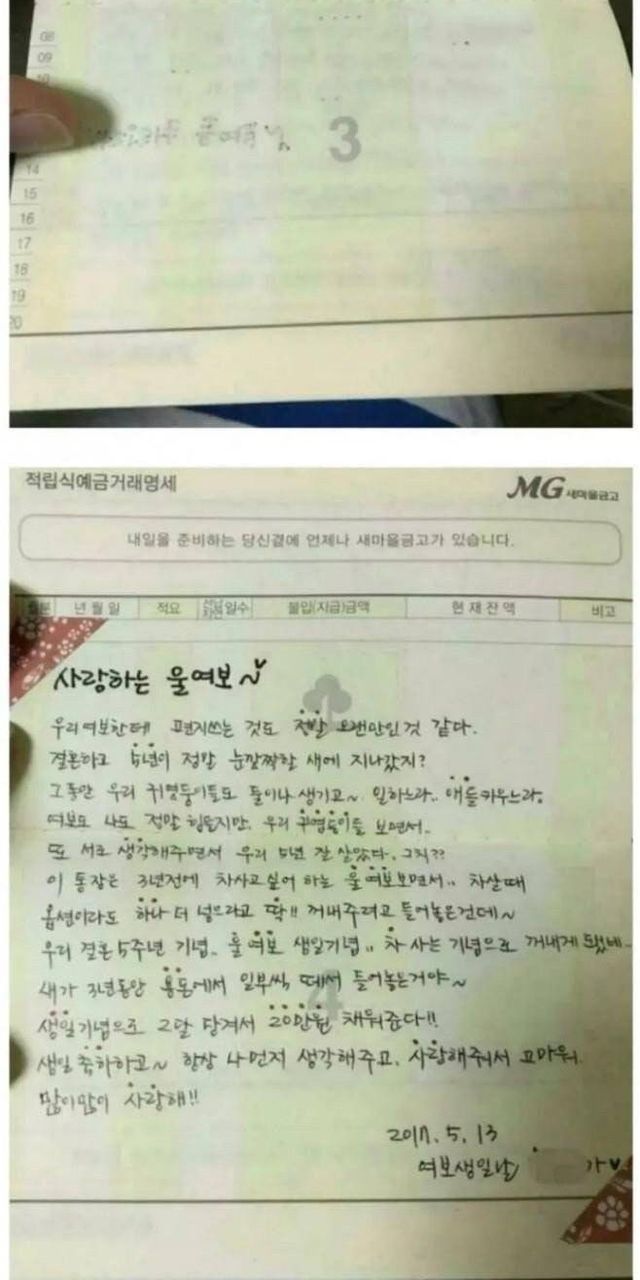 08
09
10
3
14
15
16
17
18
19
20
적립식예금거래명세
MG 새마을금고
내일을 준비하는 당신곁에 언제나 새마을금고가 있습니다.
년월일 적요 일수 불입(지급)금액 현재잔액 비고
사랑하는 울여보~♥
우리여보한테 편지쓰는 것도 정말 오랜만인것 같다.
결혼하고 5년이 정말 눈깜짝할 새에 지나갔지?
그동안 우리 귀염둥이들도 둘이나 생기고~ 일하느라.. 애들키우느라.
여보도 나도 정말 힘들지만. 우리 귀염둥이들 보면서..
또 서로 생각해주면서 우리 5년 잘 살았다. 그치??
이 통장은 3년전에 차사고싶어 하는 울 여보보면서.. 차살때
옵션이라도 하나 더 넣으라고 딱!! 꺼내주려고 들어놓은건데~
우리 결혼 5주년 기념.. 울 여보 생일기념.. 차 사는 기념으로 꺼내게 됐네..
내가 3년동안 용돈에서 일부씩 떼서 들어놓은거야~
생일기념으로 2달 당겨서 20만원 채워준다!!
생일 축하하고~ 항상 나먼저 생각해주고. 사랑해줘서 고마워.
많이많이 사랑해!!
2017. 5. 13
여보생일날 가♥
4